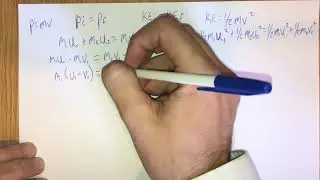 P=mv Pi = Pf KEi = KEf KE = ½mv²
m₁u₁ + m₂u₂ = m₁v₁ ½m₁u₁² + ½m₂u₂² = ½m₁v₁² + ½m₂v₂²
m₁u₁ - m₁v₁ = m₂v₂
m₁(u₁-v₁) =